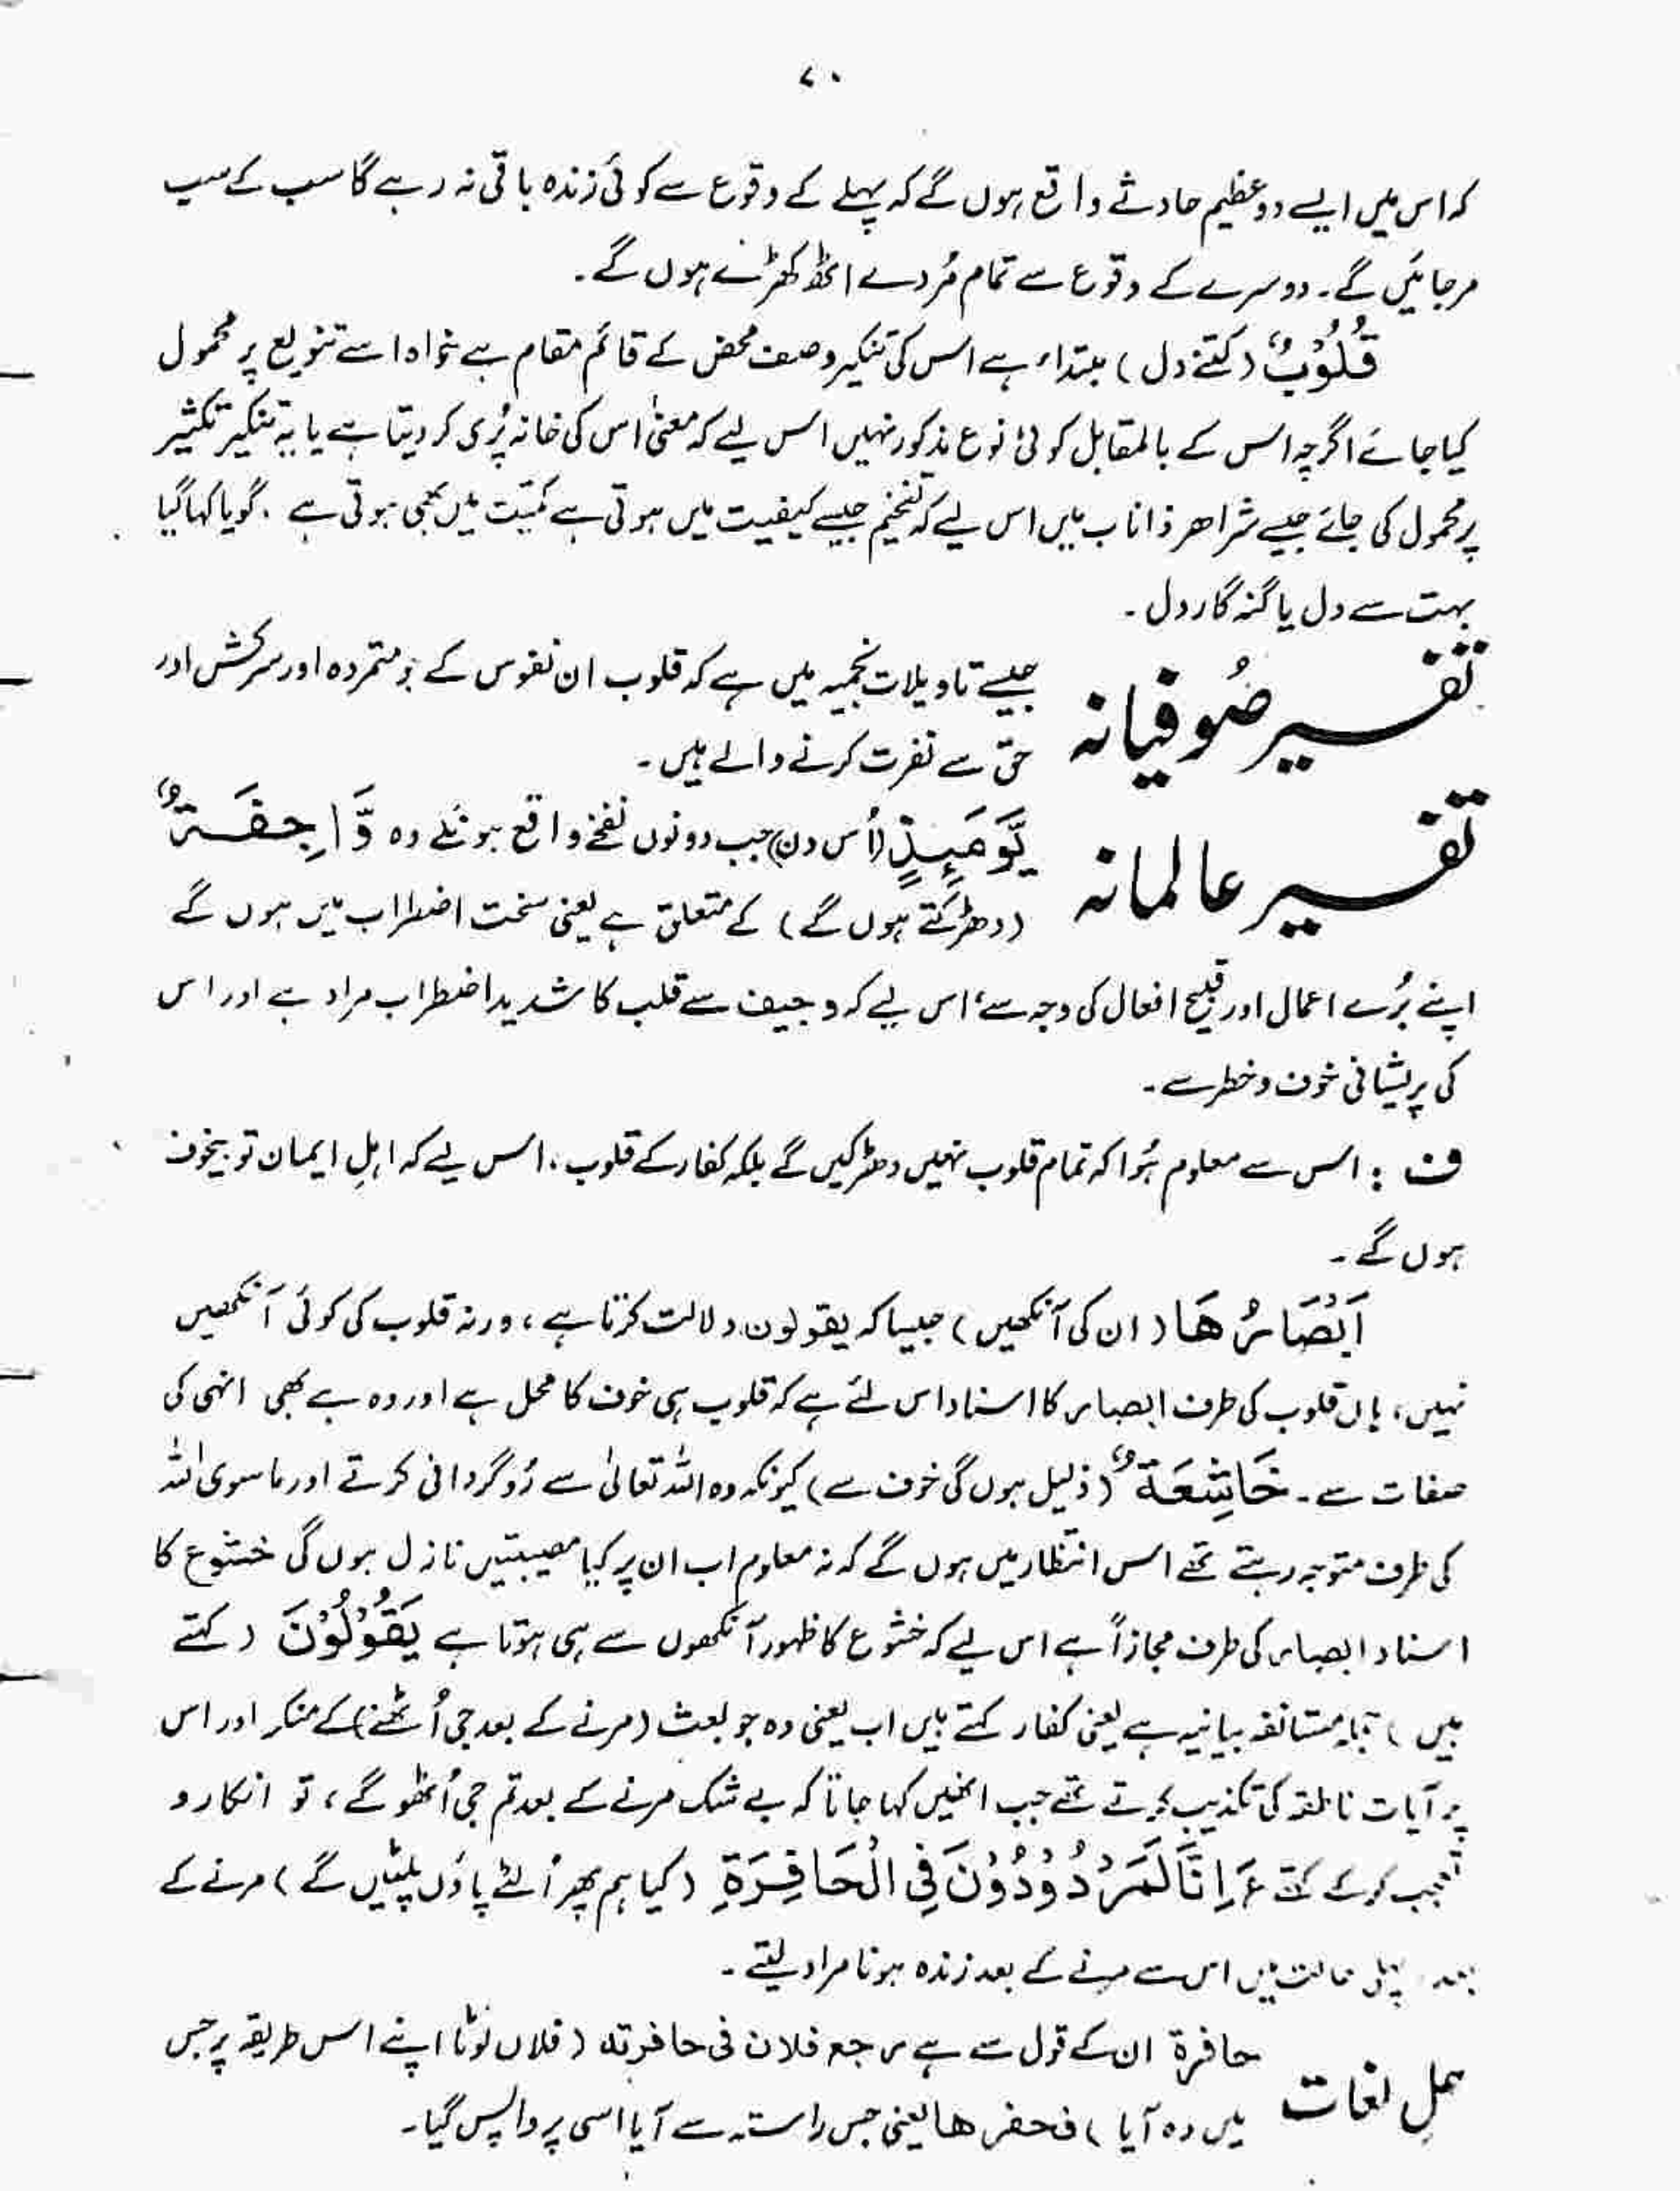 ۷۰
کہ اس میں ایسے دو عظیم حادثے واقع ہوں گے کہ پہلے کے وقوع سے کوئی زندہ باقی نہ رہے گا سب کے سب
مرجائیں گے۔ دوسرے کے وقوع سے تمام مُردے اٹھ کھڑے ہوں گے۔
قُلُوْبٌ (کتنے دل) مبتداء ہے اس کی تنکیر وصف محض کے قائم مقام ہے خواہ اسے تنویع پر محمول
کیا جائے اگرچہ اس کے بالمقابل کوئی نوع مذکور نہیں اس لیے کہ معنیٰ اس کی خانہ پُری کر دیتا ہے یا یہ تنکیر تکثیر
پر محمول کی جائے جیسے شر اھر ذا ناب میں اس لیے کہ تفخیم جیسے کیفیت میں ہوتی ہے کمیّت میں بھی ہوتی ہے ۔ گویا کہا گیا
بہت سے دل یا گنہ گار دل ۔
تفسیر صُوفیانہ
جیسے تاویلات نجمیہ میں ہے کہ قلوب ان نفوس کے جو متمردہ اور سرکش اور
حق سے نفرت کرنے والے ہیں ۔
تفسیر عالمانہ
یَّوْمَىِٕذٍ (اُس دن) جب دونوں نفخے واقع ہونگے وہ وَّاجِفَةٌ
(دھڑکتے ہوں گے) کے متعلق ہے یعنی سخت اضطراب میں ہوں گے
اپنے بُرے اعمال اور قبیح افعال کی وجہ سے، اس لیے کہ وجیف سے قلب کا شدید اضطراب مراد ہے اور اس
کی پریشانی خوف و خطر سے ۔
ف : اس سے معلوم ہُوا کہ تمام قلوب نہیں دھڑکیں گے بلکہ کفار کے قلوب، اس لیے کہ اہلِ ایمان تو بیخوف
ہوں گے ۔
اَبْصَارُهَا (ان کی آنکھیں) جیسا کہ یقولون دلالت کرتا ہے، ورنہ قلوب کی کوئی آنکھیں
نہیں، ہاں قلوب کی طرف ابصار کا اسناد اس لئے ہے کہ قلوب ہی خوف کا محل ہے اور وہ ہے بھی انہی کی
صفات سے ۔ خَاشِعَةٌ (ذلیل ہوں گی خوف سے) کیونکہ وہ اللہ تعالیٰ سے رُوگردانی کرتے اور ماسوی اللہ
کی طرف متوجہ رہتے تھے اس انتظار میں ہوں گے کہ نہ معلوم اب ان پر کیا مصیبتیں نازل ہوں گی خشوع کا
اسناد ابصار کی طرف مجازاً ہے اس لیے کہ خشوع کا ظہور آنکھوں سے ہی ہوتا ہے یَقُوْلُوْنَ (کہتے
ہیں) مستانفہ بیانیہ ہے یعنی کفار کہتے ہیں اب یعنی وہ جو بعث (مرنے کے بعد جی اُٹھنے) کے منکر اور اس
پر آیات ناطقہ کی تکذیب کرتے تھے جب انھیں کہا جاتا کہ بے شک مرنے کے بعد تم جی اُٹھو گے، تو انکار و
تعجب کرکے کہتے ءَاِنَّا لَمَرْدُوْدُوْنَ فِی الْحَافِرَةِ (کیا ہم پھر اُلٹے پاؤں پلٹیں گے) مرنے کے
بعد پہلی حالت میں اس سے مرنے کے بعد زندہ ہونا مراد لیتے ۔
حلِ لغات
حافرة ان کے قول سے ہے رجع فلان فی حافرته (فلاں لوٹا اپنے اس طریقہ پر جس
میں وہ آیا) فحفرھا یعنی جس راستہ سے آیا اسی پر واپس گیا۔